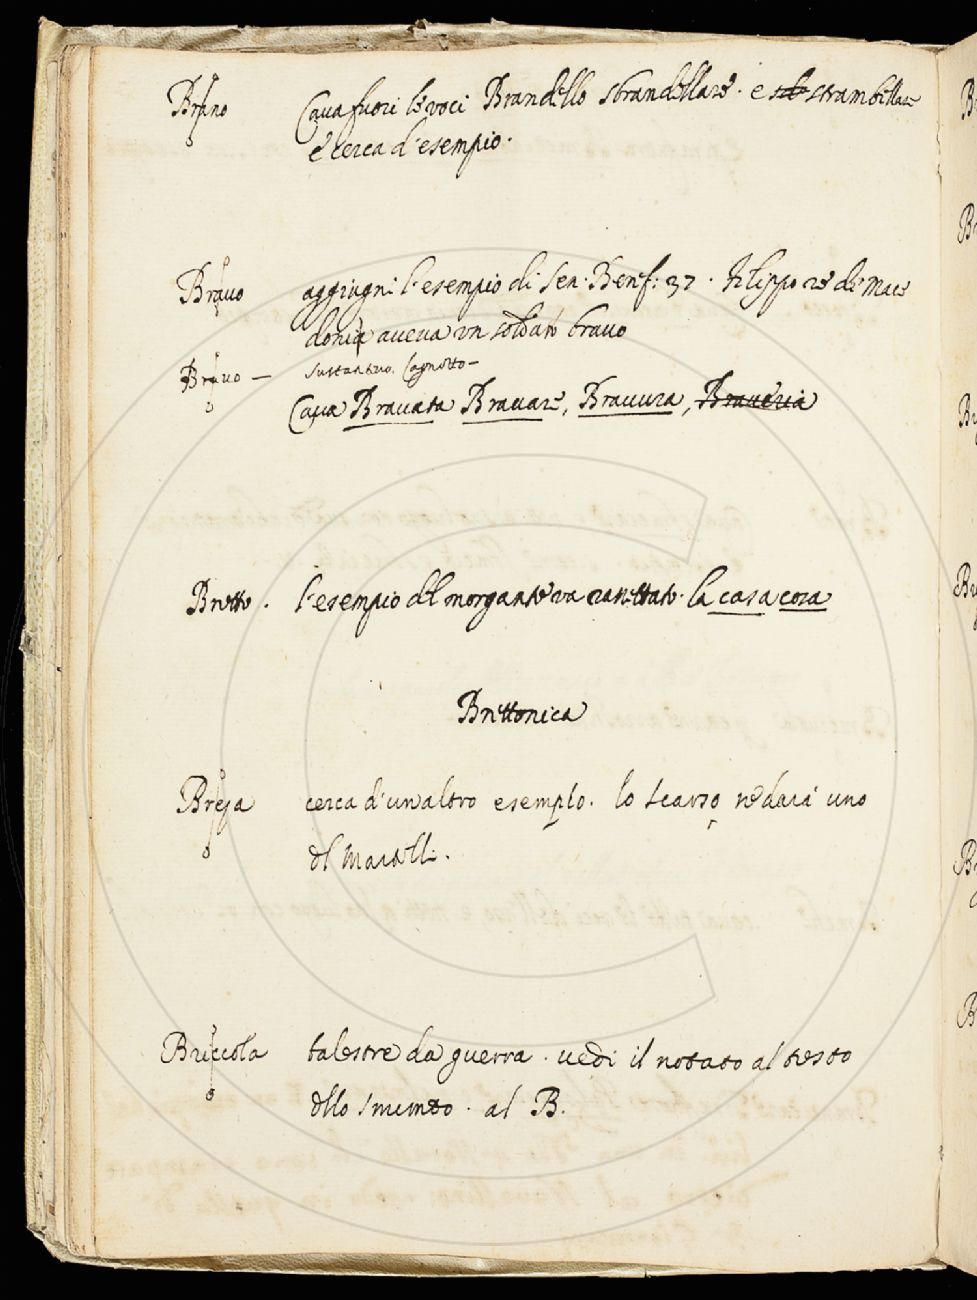 Brano Cava fuori le voci Brandello sbrandellare. e strambellare
e cerca d'esempio.
Bravo aggiugni l'esempio di Sen. Benef: 37. Filippo re de Mace
donia aveva un soldato bravo
Bravo — sustantivo. Cagnotto —
Cava Bravata Bravare, Bravura, Braveria
Bretto. l'esempio del morgante va rassettato. la casa cosa
Brettonica
cerca d'un altro esemplo. lo scarso ne darà uno
del Martelli.
Briccola balestre da guerra. vedi il notato al testo
dello smunto. al B.